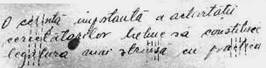 O cerință importantă a activității
cercetătorilor trebuie să constituie
legătura mai strînsă cu practica